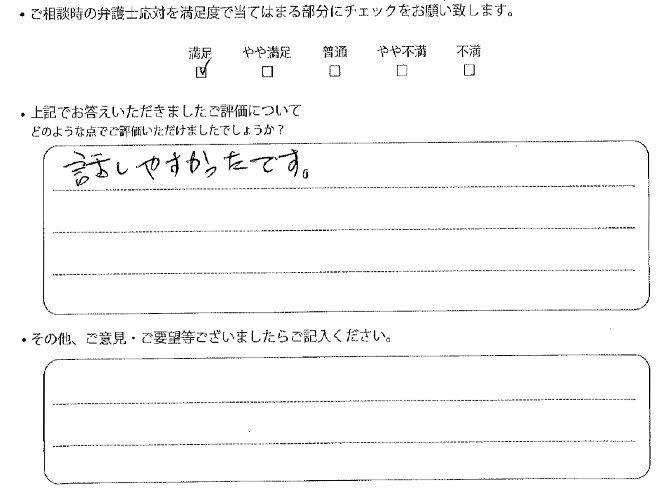 ・ご相談時の弁護士応対を満足度で当てはまる部分にチェックをお願い致します。
満足 やや満足 普通 やや不満 不満
☑ □ □ □ □
・上記でお答えいただきましたご評価について
どのような点でご評価いただけましたでしょうか？
話しやすかったです。
・その他、ご意見・ご要望等ございましたらご記入ください。